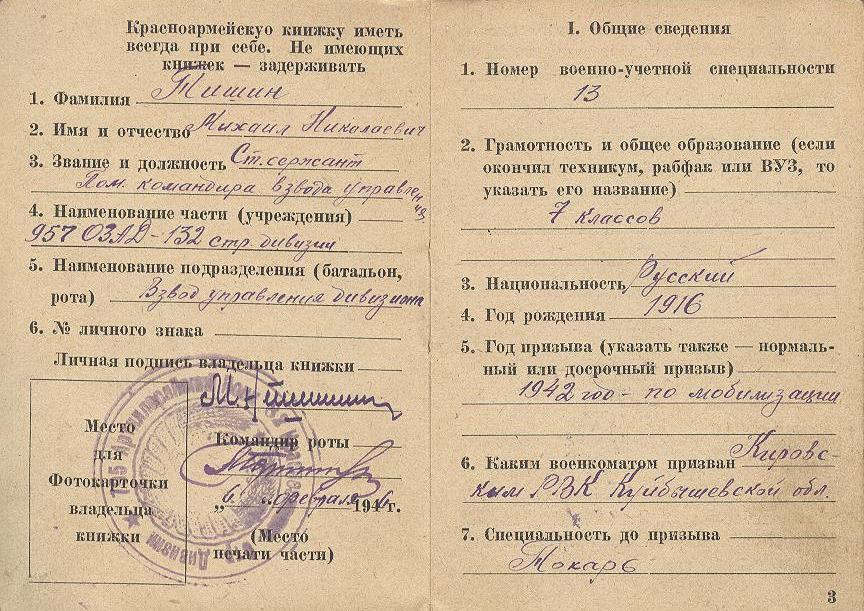 Красноармейскую книжку иметь
всегда при себе. Не имеющих
книжек — задерживать
1. Фамилия Тишин
2. Имя и отчество Михаил Николаевич
3. Звание и должность Ст. сержант
Пом. командира взвода управления
4. Наименование части (учреждения)
957 ОЗАД-132 стр. дивизии
5. Наименование подразделения (батальон,
рота) Взвод управления дивизиона
6. № личного знака
Личная подпись владельца книжки
Место
для
Фотокарточки
владельца
книжки
Командир роты
„6“ февраля 194 г.
(Место
печати части)
I. Общие сведения
1. Номер военно-учетной специальности
13
2. Грамотность и общее образование (если
окончил техникум, рабфак или ВУЗ, то
указать его название)
7 классов
3. Национальность Русский
4. Год рождения 1916
5. Год призыва (указать также — нормаль-
ный или досрочный призыв)
1942 год - по мобилизации
6. Каким военкоматом призван Кировс-
ким РВК Куйбышевской обл.
7. Специальность до призыва
Токарь
3